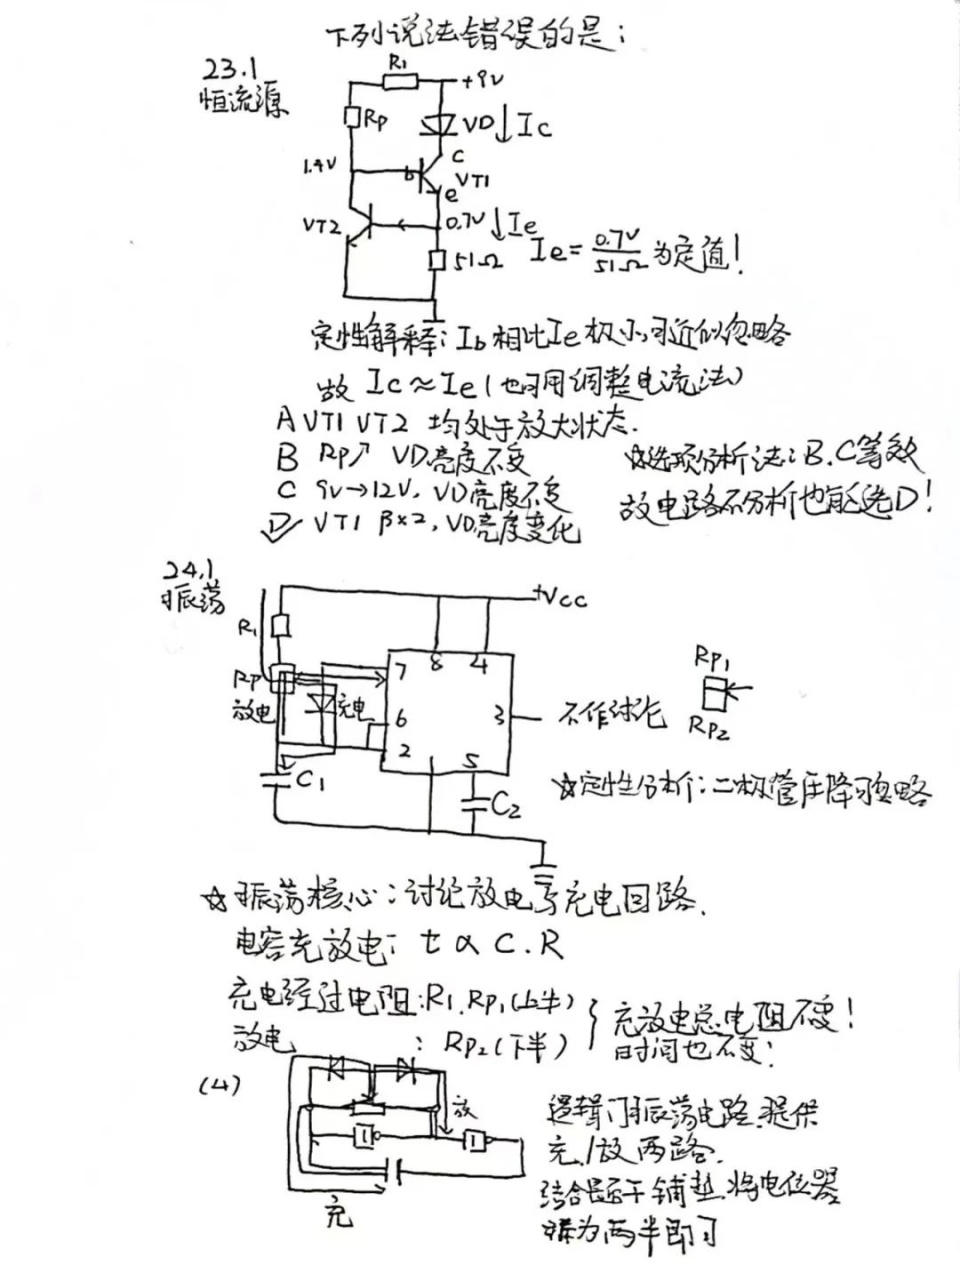 下列说法错误的是:
23.1
恒流源
R1
+9V
Rp
VD ↓Ic
1.4V
b
c
VT1
e
VT2
0.7V ↓Ie
51Ω
Ie=0.7V/51Ω 为定值!
定性解释: Ib相比Ie极小,可近似忽略
故 Ic≈Ie(也可用调整电流法)
A VT1 VT2 均处于放大状态.
B Rp↗ VD亮度不变
C 9V→12V, VD亮度不变
D VT1 β×2, VD亮度变化
☆选项分析法: B.C等效
故电路不分析也能选D!
24.1
振荡
+Vcc
R1
RP
放电
充电
7
8
4
6
2
3
5
不作讨论
C1
C2
Rp1
Rp2
☆定性分析:二极管压降可忽略
☆振荡核心:讨论放电与充电回路.
电容充放电: t∝C.R
充电经过电阻:R1.Rp1(上半)
放电 : Rp2(下半)
充放电总电阻不变!
时间也不变!
(4)
放
1
1
充
逻辑门振荡电路.提供
充/放两路.
结合题干铺垫.将电位器
为两半即可